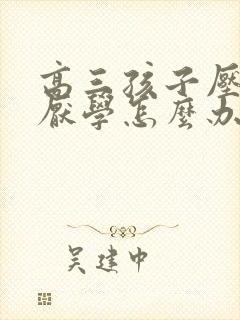 高三孩子壓
厭學怎麼办
吴建中